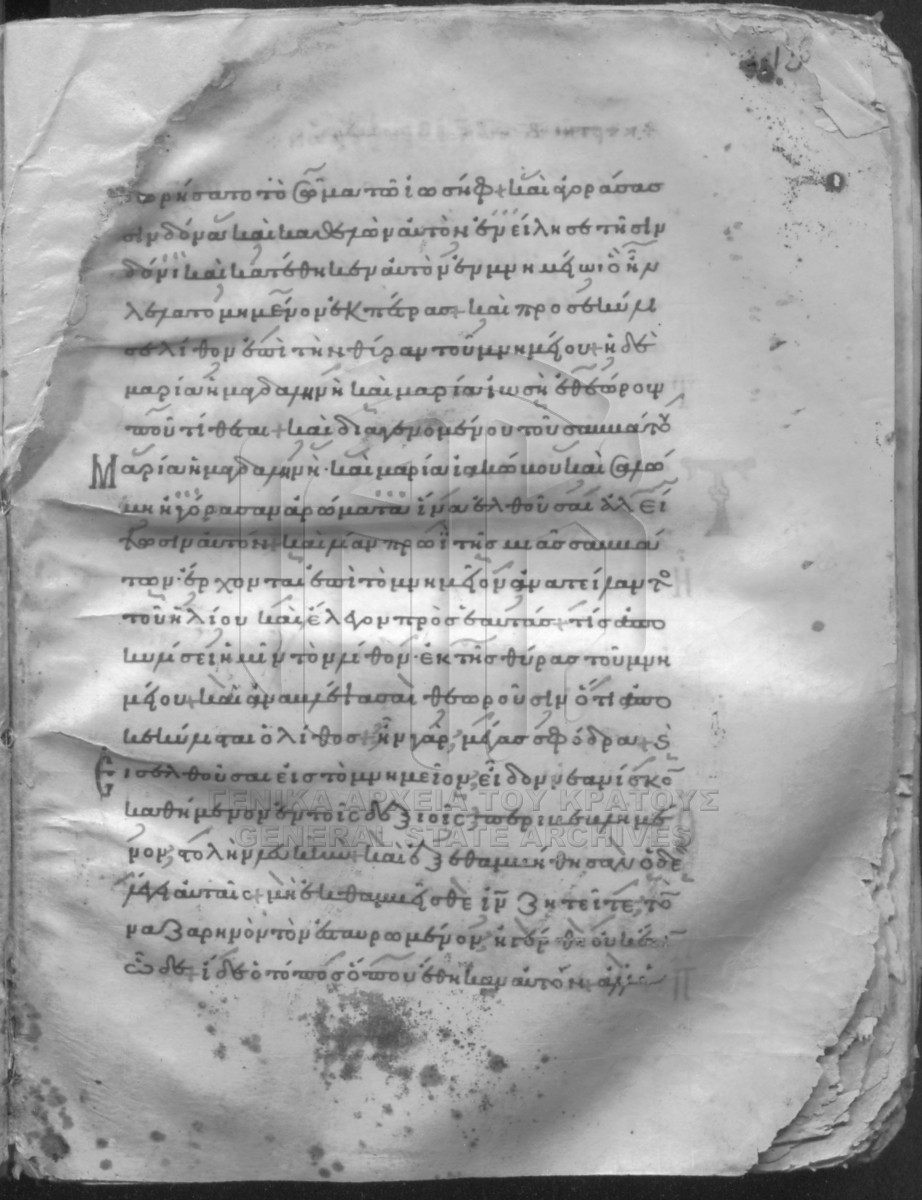 δωρήσατο τὸ σῶμα τῶ ἰωσήφ + καὶ ἀγοράσας
σινδόνα καὶ καθελὼν αὐτὸν ἐνείλησε τῆ σιν
δόνι καὶ κατέθηκεν αὐτὸν ἐν μνημείω ὃ ἦν
λελατομημένον ἐκ πέτρας + καὶ προσεκύλι
σε λίθον ἐπὶ τὴν θύραν τοῦ μνημείου + ἡ δὲ
μαρία ἡ μαγδαληνὴ καὶ μαρία ἰωσῆ ἐθεώρουν
ποῦ τίθεται + καὶ διαγενομένου τοῦ σαββάτου
Μαρία ἡ μαγδαληνὴ · καὶ μαρία ἰακώβου καὶ σαλώ
μη ἠγόρασαν ἀρώματα ἵνα ἐλθοῦσαι ἀλεί
ψωσιν αὐτόν + καὶ λίαν πρωῒ τῆς μιᾶς σαββά
των · ἔρχονται ἐπὶ τὸ μνημεῖον ἀνατείλαντος
τοῦ ἡλίου καὶ ἔλεγον πρὸς ἑαυτάς + τίς ἀπο
κυλίσει ἡμῖν τὸν λίθον · ἐκ τῆς θύρας τοῦ μνη
μείου + καὶ ἀναβλέψασαι θεωροῦσιν ὅτι ἀπο
κεκύλισται ὁ λίθος + ἦν γὰρ, μέγας σφόδρα + ϛ
Εἰσελθοῦσαι εἰς τὸ μνημεῖον, εἶδον νεανίσκον
καθήμενον ἐν τοῖς δεξιοῖς, περιβεβλημέ
νον, στολὴν λευκὴν + καὶ ἐξεθαμβήθησαν ὁ δὲ
λέγει αὐταῖς + μὴ ἐκθαμβεῖσθε ιν ζητεῖτε, τὸν
ναζαρηνὸν τὸν ἐσταυρωμένον, ἠγέρθη οὐκ ἔστιν
ὧδε + ἴδε ὁ τόπος ὅπου ἔθηκαν αὐτόν + ἀλλ
ΓΕΝΙΚΑ ΑΡΧΕΙΑ ΤΟΥ ΚΡΑΤΟΥΣ
GENERAL STATE ARCHIVES